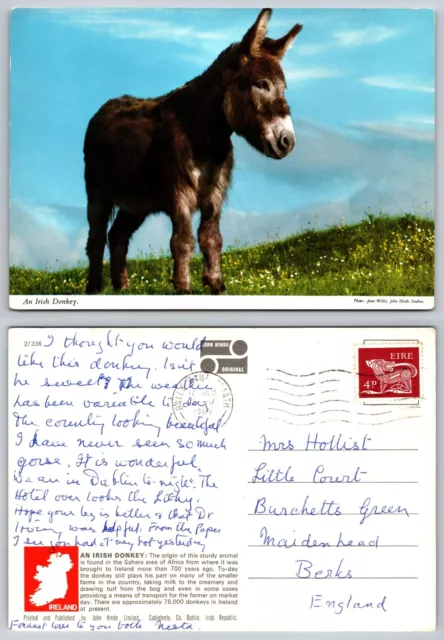 An Irish Donkey.
Photo: Joan Willis, John Hinde Studios.
2/336
JOHN HINDE
ORIGINAL
I thought you would
like this donkey. Isn't
he sweet? The weather
has been variable to-day
The country looking beautiful
I have never seen so much
gorse. It is wonderful.
am in Dublin to-night. The
Hotel over looks the Liffey.
Hope your leg is better & that Dr
was helpful. From the Paper
I see you had a very hot yesterday
EIRE
4p
Mrs Hollist
Little Court
Burchetts Green
Maidenhead
Berks
England
IRELAND
AN IRISH DONKEY: The origin of this sturdy animal
is found in the Sahara area of Africa from where it was
brought to Ireland more than 700 years ago. To-day
the donkey still plays his part on many of the smaller
farms in the country, taking milk to the creamery and
drawing turf from the bog and even in some cases
providing a means of transport for church or market
day. There are approximately 75,000 donkeys in Ireland
at present.
Printed and Published by John Hinde Limited, Cabinteely, Co. Dublin, Irish Republic.
Fondest love to you both